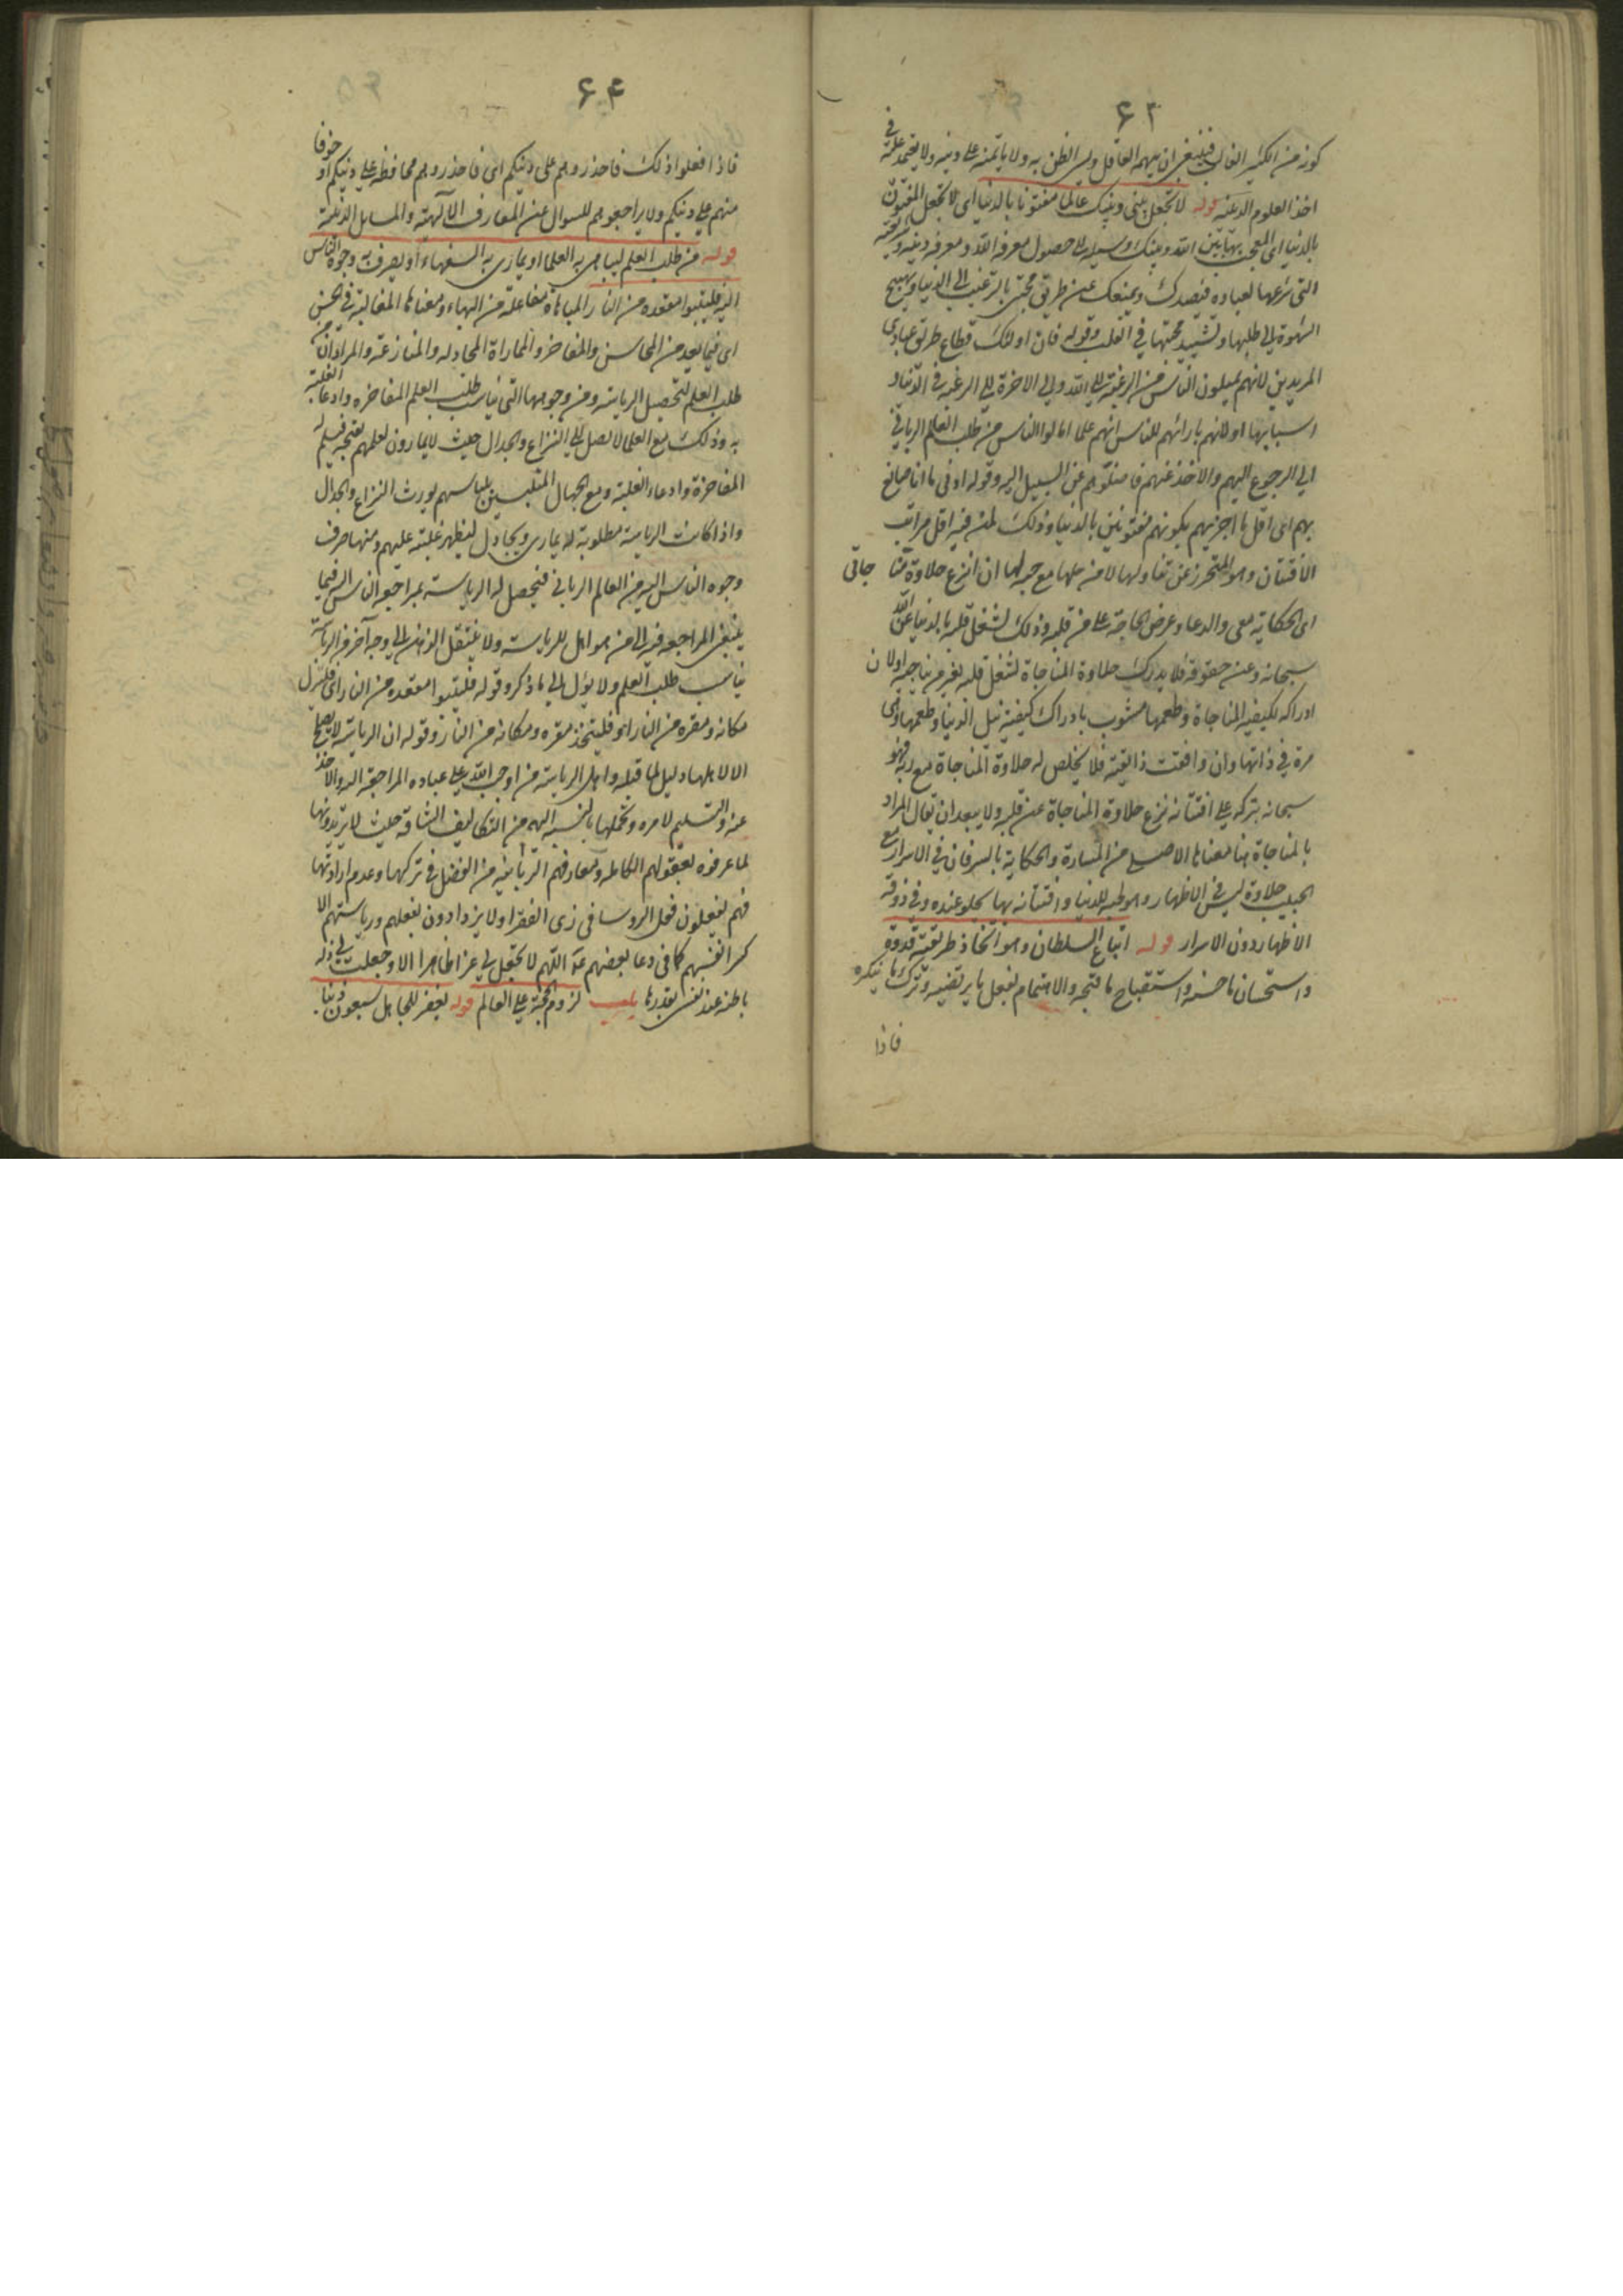 ۶۳
كونه من الكثير الغالب فينبغى ان يتهمه العاقل ويسئ الظن به ولا ياتمنه على دينه ولا يعتمد عليه فى
اخذ العلوم الدينية قوله لا تجعل بينى وبينك عالما مفتونا بالدنيا اى لا تجعل المفتون
بالدنيا اى المعجب بها بين الله وبينك وسيلة الى حصول معرفة الله ومعرفة دينه وشريعته
التى شرعها لعباده فيصدك ويمنعك عن طريق محبتى بالترغيب الى الدنيا وتهييج
الشهوة الى طلبها وتشييد محبتها فى القلب وقوله فان اولئك قطاع طريق عبادى
المريدين لانهم يميلون الناس من الرغبة الى الله والى الاخرة الى الرغبة فى الدنيا و
اسبابها او لانهم بارائهم للناس انهم علما امالوا الناس من طلب العالم الربانى
الى الرجوع اليهم والاخذ عنهم فاضلوهم عن السبيل اليه وقوله ادنى ما انا صانع
بهم اى اقل ما اجزيهم بكونهم مفتونين بالدنيا وذلك لمن فيه اقل مراتب
الافتتان وهو المتحرز عن تناولها لا من حلها مع حبه لها ان انزع حلاوة منا جاتى
اى الحكاية معى والدعا وعرض الحاجة على من قلبه وذلك لشغل قلبه بالدنيا عن الله
سبحانه وعن حقوقه فلا يدرك حلاوة المناجاة لشغل قلبه بغير من يناجيه او لان
ادراكه لكيفية المناجاة وطعمها مشوب بادراك كيفية نيل الدنيا وطعمها وهى
مرة فى ذاتها وان وافقت ذائقته فلا يخلص له حلاوة المناجاة مع ربه فهو
سبحانه بتركه على افتتانه نزع حلاوة المناجاة عن قلبه ولا يبعد ان يقال المراد
بالمناجاة هنا معناها الاصلى من المسارة والحكاية بالسر فان فى الاسرار مع
الحبيب حلاوة ليس فى الاظهار وهو لحبه للدنيا وافتتانه بها يحلو عنده وفى ذوقه
الاظهار دون الاسرار قوله اتباع السلطان وهو اتخاذ طريقته قدوة
واستحسان ما حسنه واستقباح ما قبحه والاهتمام بفعل ما يرتضيه وترك ما ينكره
فاذا
۶۴
فاذا فعلوا ذلك فاحذروهم على دينكم اى فاحذروهم محافظة على دينكم او خوفا
منهم على دينكم ولا يراجعوهم للسوال عن المعارف الآلهية والمسايل الدينية
قوله من طلب العلم ليباهى به العلما او يمارى به السفهاء او يصرف به وجوه الناس
اليه فليتبوا مقعده من النار المباهاة مفاعلة من البهاء ومعناها المغالبة فى الحسن
اى فيما يعد من المحاسن والمفاخر والمماراة المجادله والمنازعة والمراد ان من
طلب العلم لتحصيل الرياسة ومن وجوهها التى يناسب طلب العلم المفاخره وادعا الغلبة
به وذلك مع العلما لا يصل الى النزاع والجدال حيث لا يمارون لعلمهم بقبحه فيسلم له
المفاخرة وادعاء الغلبة ومع الجهال المتلبسين بلباسهم يورث النزاع والجدال
واذا كانت الرياسة مطلوبة له يمارى ويجادل ليظهر غلبته عليهم ومنها صرف
وجوه الناس اليه من العالم الربانى فيحصل له الرياسة بمراجعة الناس اليه فيما
ينبغى المراجعه فيه الى من هو اهل للرياسة ولا ينتقل الذهن الى وجه آخر من الرياسة
يناسب طلب العلم ولا يؤل الى ما ذكر وقوله فليتبوا مقعده من النار اى فلينزل
مكانه ومقره من النار او فليتخذ مقره ومكانه من النار وقوله ان الرياسة لا يصلح
الا لاهلها دليل لما قبله واهل الرياسة من اوجب الله على عباده المراجعة اليه والاخذ
عنه والتسليم لامره وتحملها بالنسبة اليه من التكاليف الشاقه حيث لا يريدونها
لما عرفوه بعقولهم الكامله ومعارفهم الربانيه من الفضل فى تركها وعدم ارادتها
فهم يفعلون فعل الروسا فى زى الفقرا ولا يزدادون بفعلهم ورياستهم الا
كسر انفسهم كما فى دعا بعضهم عه اللهم لا تجعل لى عزا ظاهرا الا وجعلت لى ذلة
باطنه عند نفسى بقدرها باب لزوم الحجة على العالم قوله يغفر للجاهل سبعون ذنبا